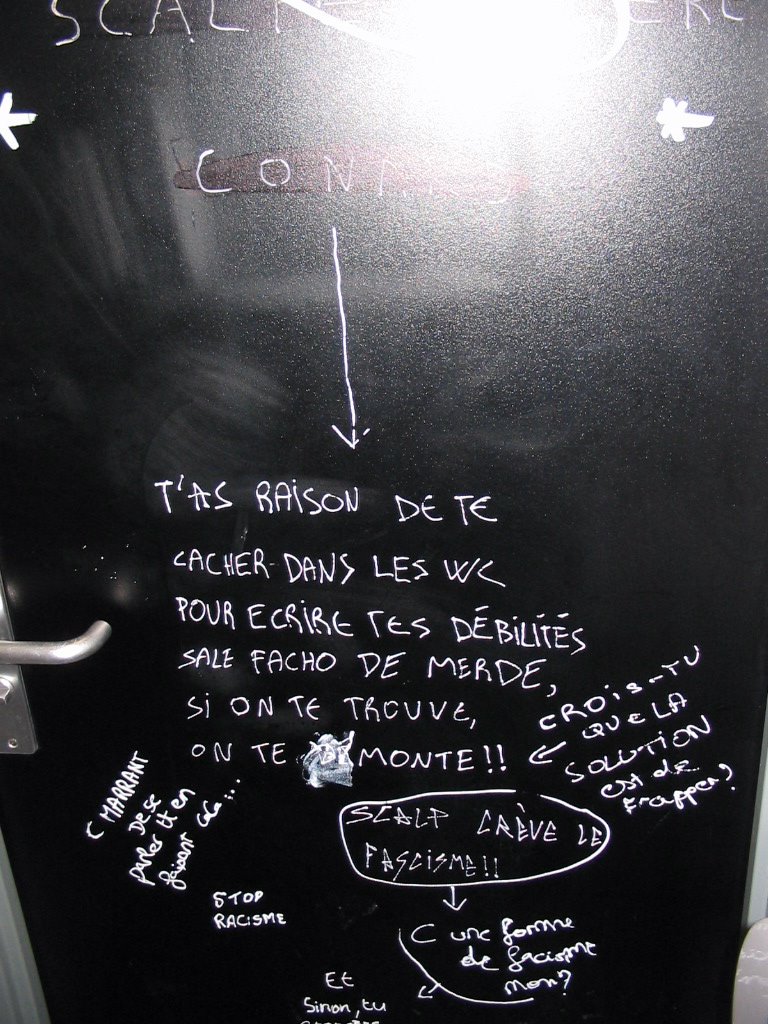 SCALP
T'AS RAISON DE TE
CACHER DANS LES WC
POUR ECRIRE TES DÉBILITÉS
SALE FACHO DE MERDE,
SI ON TE TROUVE,
ON TE DÉMONTE!!
CROIS-TU
QUE LA
SOLUTION
est de
frapper?
C MARRANT
De se
parler tt en
faisant caca...
SCALP CRÈVE LE
FASCISME!!
STOP
RACISME
C une forme
de facisme
non?
Et
Sinon, tu